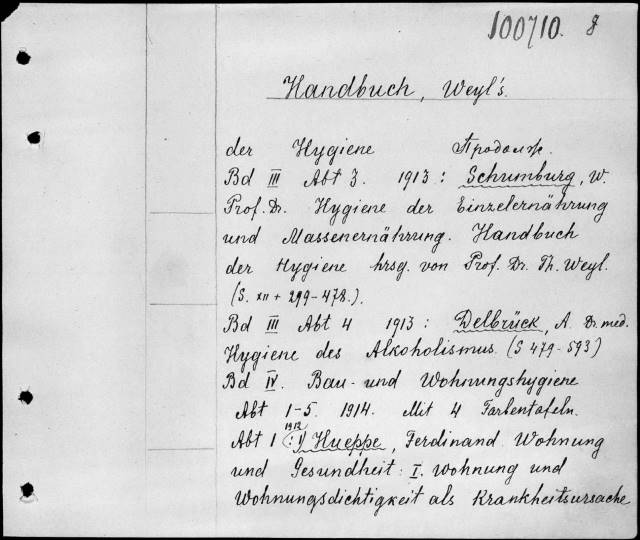 100710. g
Handbuch, Weyl's.
der Hygiene Продолж.
Bd III Abt 3. 1913 : Schumburg, W.
Prof. Dr. Hygiene der Einzelernährung
und Massenernährung. Handbuch
der Hygiene hrsg. von Prof. Dr. Th. Weyl.
(S. XII + 299-478.).
Bd III Abt 4 1913 : Delbrück, A. Dr. med.
Hygiene des Alkoholismus. (S 479-593)
Bd IV. Bau- und Wohnungshygiene
Abt 1-5. 1914. Mit 4 Farbentafeln.
1912
Abt 1 (:1) Hueppe, Ferdinand. Wohnung
und Gesundheit: I. Wohnung und
Wohnungsdichtigkeit als Krankheitsursache